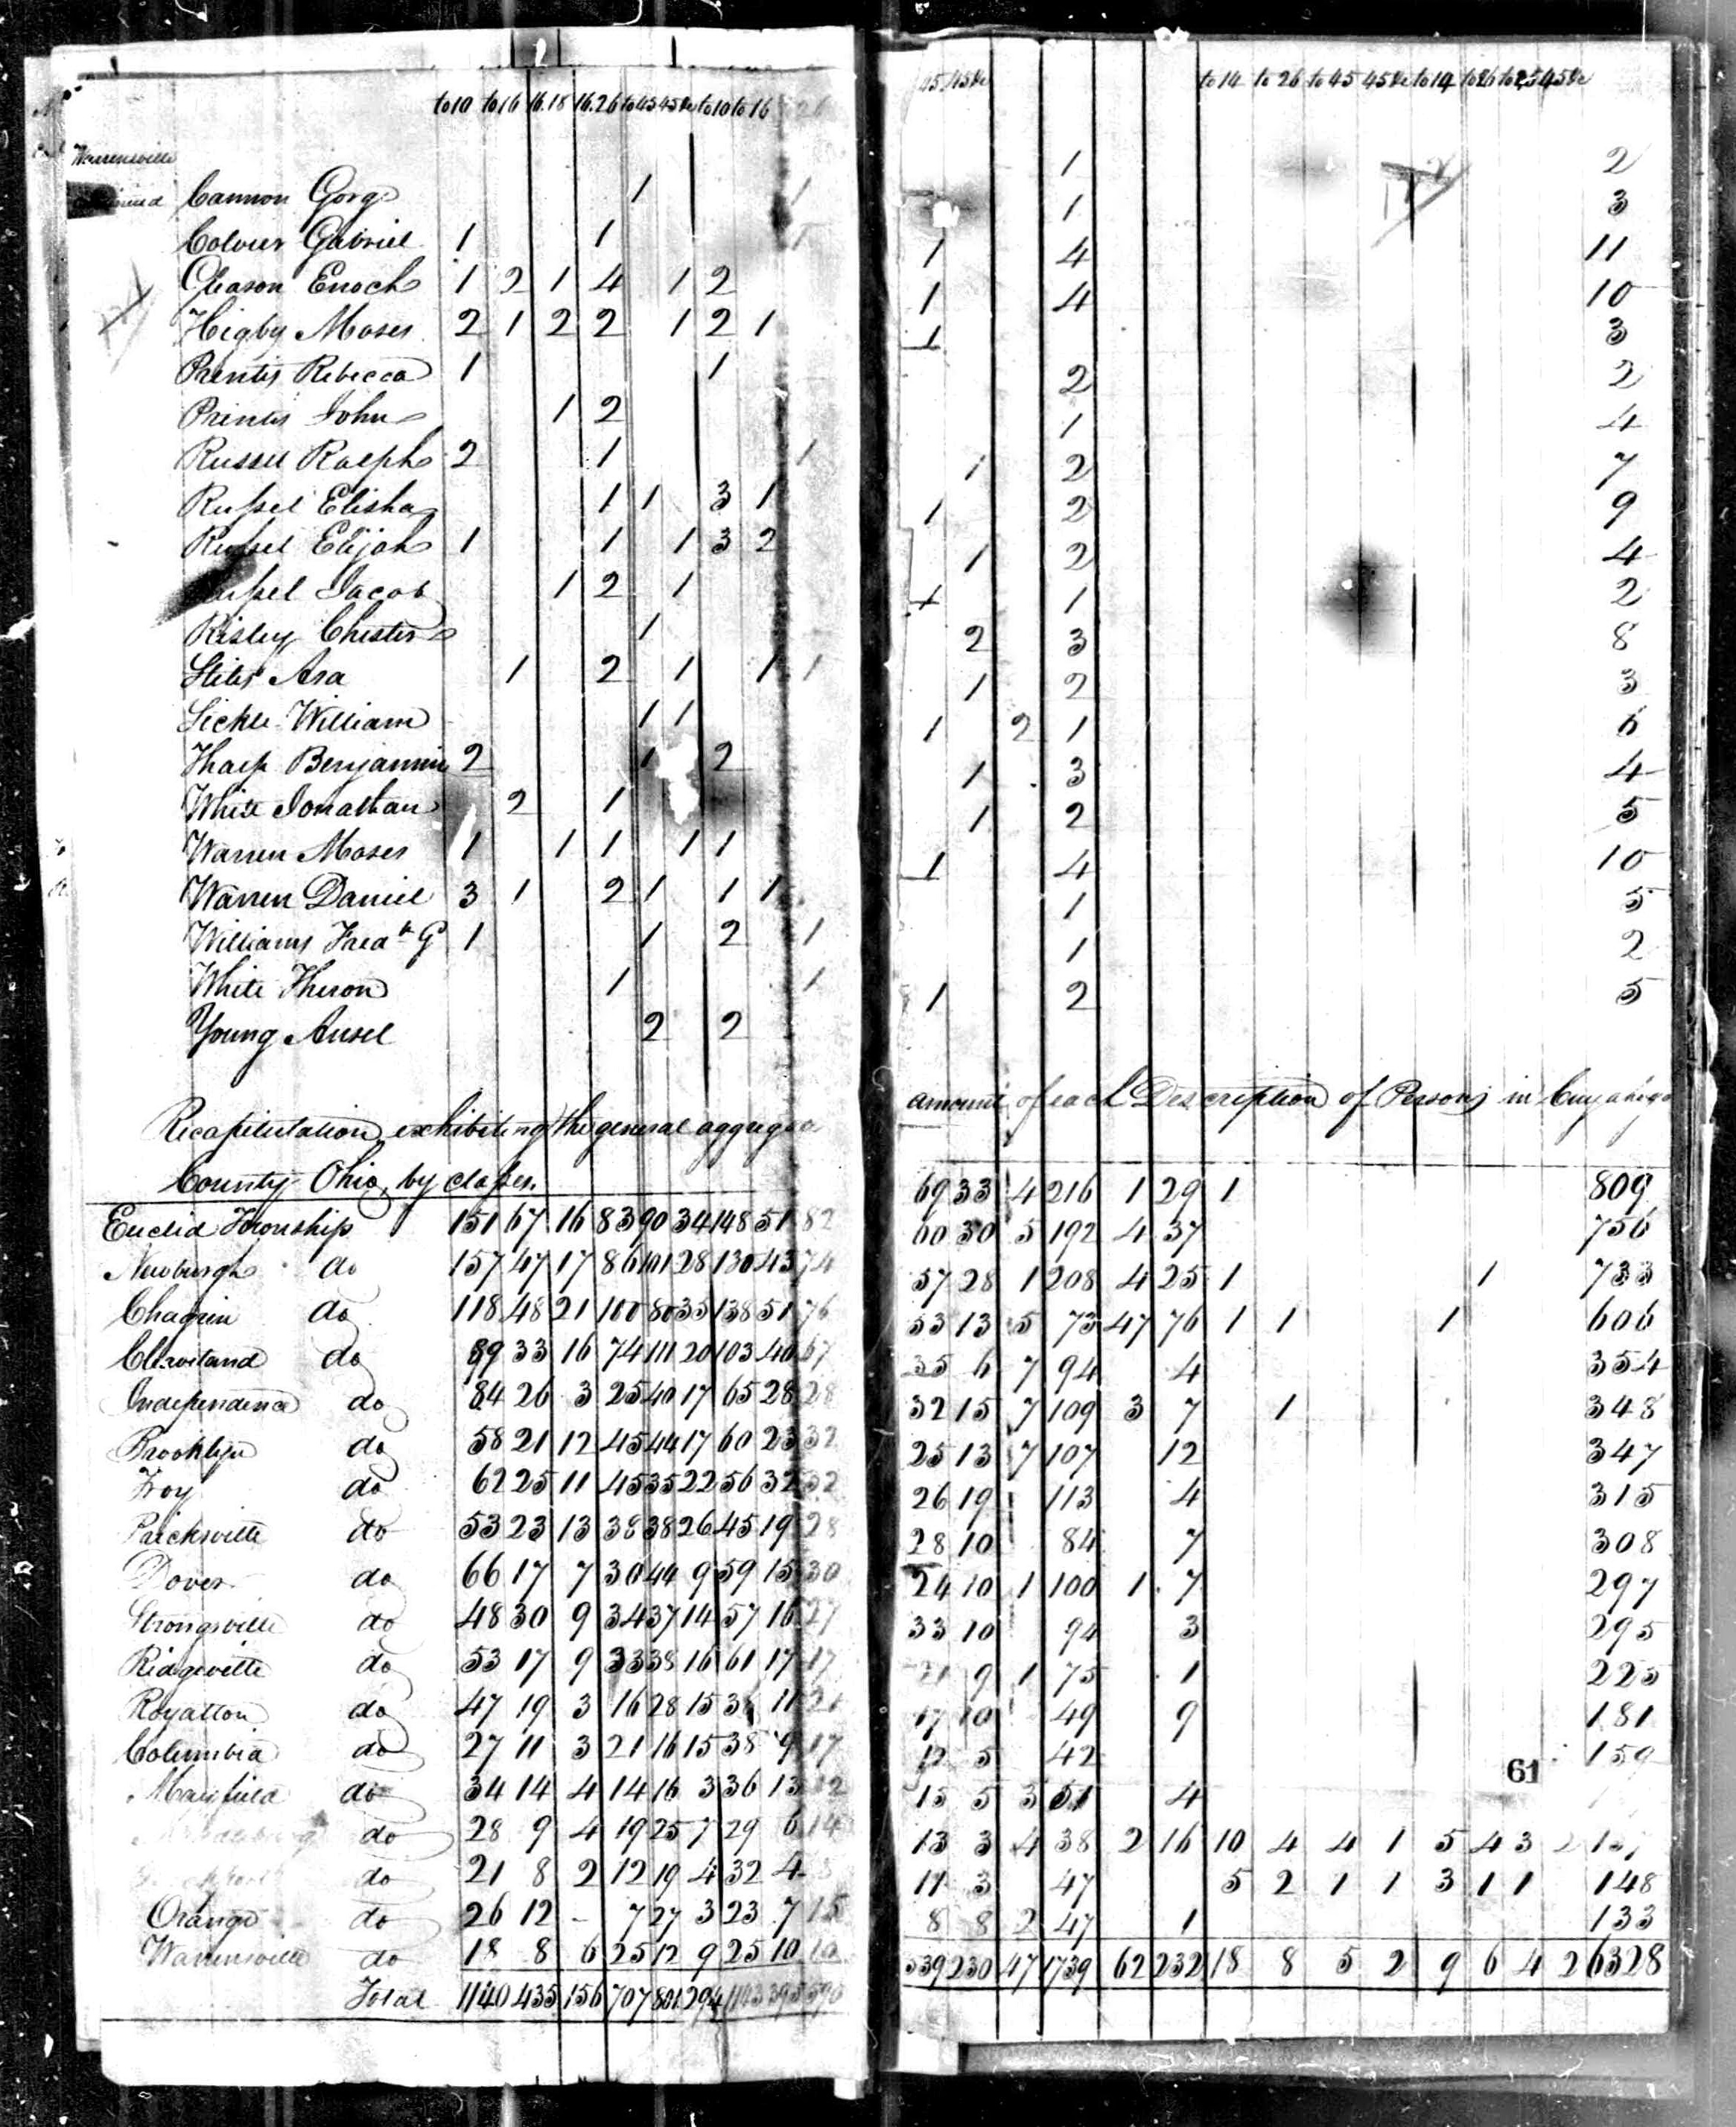 to10 to16 16.18 16.26 to45 45&c to10 to16 26
45 45&c to14 to 26 to 45 45&c to14 to26 to 45 45&c
Warrensville
Cannon Gorge 1 1 1 2
Colver Gabriel 1 1 1 3
Gleason Enoch 1 2 1 4 1 2 1 4 11
Higby Moses 2 1 2 2 1 2 1 1 4 10
Prentis Rebecca 1 1 1 3
Prentis John 1 2 2 2
Russel Ralph 2 1 1 1 4
Russel Elisha 1 1 3 1 1 2 7
Russel Elijah 1 1 1 3 2 1 2 9
Jacob 1 2 1 1 2 4
Risley Chester 1 1 1 2
Stiles Asa 1 2 1 1 1 2 3 8
Sickle William 1 1 1 2 3
Tharp Benjamin 2 1 2 1 2 1 6
White Jonathan 2 1 1 3 4
Warren Moses 1 1 1 1 1 1 2 5
Warren Daniel 3 1 2 1 1 1 1 4 10
Williams Fred.k G 1 1 2 1 1 5
White Theron 1 1 1 2
Young Ansel 2 2 1 2 5
Recapitulation exhibiting the general aggregate amount of each Description of Persons in Cuyahoga
County Ohio, by classes.
Euclid Township 151 67 16 83 90 34 148 51 82 69 33 4 216 1 29 1 809
Newburgh do 157 47 17 86 101 28 130 43 74 60 30 5 192 4 37 756
Chagrin do 118 48 21 100 80 35 138 51 76 57 28 1 208 4 25 1 1 733
Cleveland do 89 33 16 74 111 20 103 40 67 53 13 5 73 47 76 1 1 1 606
Independence do 84 26 3 25 40 17 65 28 28 35 6 7 94 4 354
Brooklyn do 58 21 12 45 44 17 60 23 32 32 15 7 109 3 7 1 348
Troy do 62 25 11 45 35 22 56 32 32 25 13 7 107 12 347
do 53 23 13 38 38 26 45 19 28 26 19 113 4 315
Dover do 66 17 7 30 44 9 59 15 30 28 10 84 7 308
Strongsville do 48 30 9 34 37 14 57 16 27 24 10 1 100 1 7 297
Ridgeville do 53 17 9 33 38 16 61 17 17 33 10 94 3 295
Royalton do 47 19 3 16 28 15 11 9 1 75 1 225
Columbia do 27 11 3 21 16 15 38 9 17 17 10 49 9 181
Mayfield do 34 14 4 14 16 3 36 13 12 12 5 42 159
do 28 9 4 19 25 7 29 6 14 15 5 3 51 4
do 21 8 2 12 19 4 32 4 13 3 4 38 2 16 10 4 4 1 5 4 3 2
Orange do 26 12 - 7 27 3 23 7 15 11 3 47 5 2 1 1 3 1 1 148
Warrensville do 18 8 6 25 12 9 25 10 10 8 8 2 47 1 133
Total 1140 435 156 707 801 294 1143 395 590 539 230 47 1739 62 232 18 8 5 2 9 6 4 2 6328
61